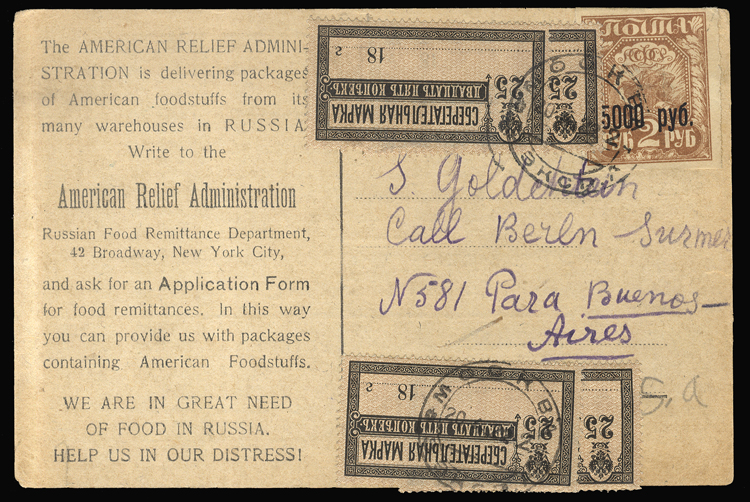 The AMERICAN RELIEF ADMINI-
STRATION is delivering packages
of American foodstuffs from its
many warehouses in RUSSIA
Write to the
American Relief Administration
Russian Food Remittance Department,
42 Broadway, New York City,
and ask for an Application Form
for food remittances. In this way
you can provide us with packages
containing American Foodstuffs.
WE ARE IN GREAT NEED
OF FOOD IN RUSSIA.
HELP US IN OUR DISTRESS!
18 г
СБЕРЕГАТЕЛЬНАЯ МАРКА
ДВАДЦАТЬ ПЯТЬ КОПѢЕКЪ
25
25
ПОЧТА
РСФСР
5000 руб.
РУБ 2 РУБ
S. Goldentein
Call Berln Surmer
N581 Para Buenos-
Aires
S. a
18 г
СБЕРЕГАТЕЛЬНАЯ МАРКА
ДВАДЦАТЬ ПЯТЬ КОПѢЕКЪ
25
25